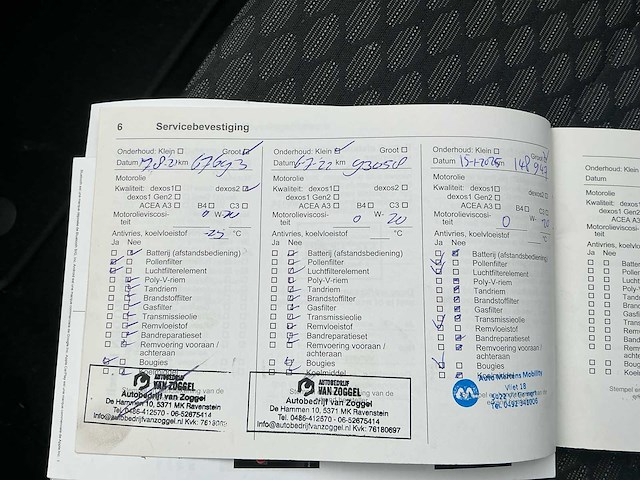 6 Servicebevestiging
Onderhoud: Klein Groot
Datum 7.8.21 km 67693
Motorolie
Kwaliteit: dexos1 dexos2
dexos1 Gen2
ACEA A3 B4 C3
Motorolieviscosi- 0 W- 20
teit
Antivries, koelvloeistof -25 °C
Ja Nee
Batterij (afstandsbediening)
Pollenfilter
Luchtfilterelement
Poly-V-riem
Tandriem
Brandstoffilter
Gasfilter
Transmissieolie
Remvloeistof
Bandreparatieset
Remvoering vooraan /
achteraan
Bougies
AUTOBEDRIJF
VAN ZOGGEL
Autobedrijf van Zoggel
De Hammen 10, 5371 MK Ravenstein
Tel. 0486-412570 - 06-52675414
info@autobedrijfvanzoggel.nl Kvk:
Onderhoud: Klein Groot
Datum km 93058
Motorolie
Kwaliteit: dexos1 dexos2
dexos1 Gen2
ACEA A3 B4 C3
Motorolieviscosi- 0 W- 20
teit
Antivries, koelvloeistof °C
Ja Nee
Batterij (afstandsbediening)
Pollenfilter
Luchtfilterelement
Poly-V-riem
Tandriem
Brandstoffilter
Gasfilter
Transmissieolie
Remvloeistof
Bandreparatieset
Remvoering vooraan /
achteraan
Bougies
AUTOBEDRIJF
VAN ZOGGEL
Autobedrijf van Zoggel
De Hammen 10, 5371 MK Ravenstein
Tel. 0486-412570 - 06-52675414
info@autobedrijfvanzoggel.nl Kvk: 76180697
Onderhoud: Klein Groot
Datum 15-1-2025 km
Motorolie
Kwaliteit: dexos1 dexos2
dexos1 Gen2
ACEA A3 B4 C3
Motorolieviscosi- 0 W- 20
teit
Antivries, koelvloeistof °C
Ja Nee
Batterij (afstandsbediening)
Pollenfilter
Luchtfilterelement
Poly-V-riem
Tandriem
Brandstoffilter
Gasfilter
Transmissieolie
Remvloeistof
Bandreparatieset
Remvoering vooraan /
achteraan
Bougies
Koelmiddel
Mobility
Vliet 18
Onderhoud: Klein
Datum
Motorolie
Kwaliteit: dexos1
dexos1 Gen2
ACEA A3
Motorolieviscosi-
teit
Antivries, koelvloeistof
Ja Nee